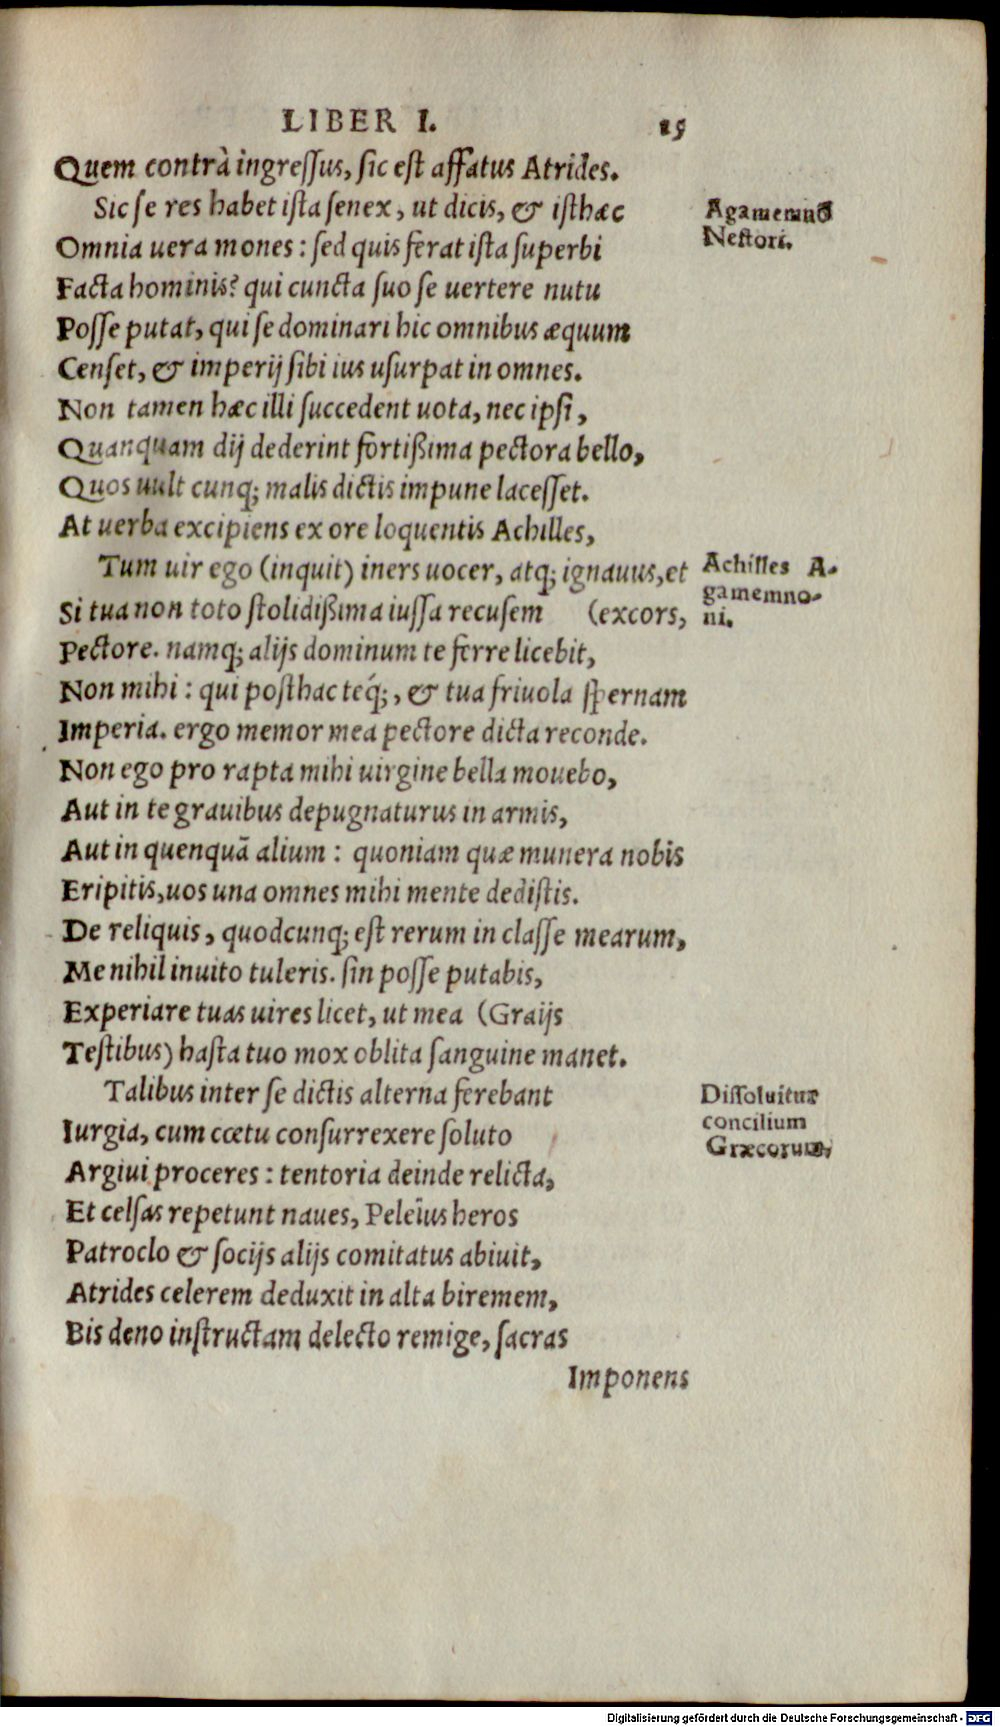 LIBER I. 15
Quem contrà ingressus, sic est affatus Atrides.
Sic se res habet ista senex, ut dicis, & isthæc
Omnia uera mones: sed quis ferat ista superbi
Facta hominis? qui cuncta suo se uertere nutu
Posse putat, qui se dominari hic omnibus æquum
Censet, & imperij sibi ius usurpat in omnes.
Non tamen hæc illi succedent uota, nec ipsi,
Quanquam dij dederint fortißima pectora bello,
Quos uult cunq; malis dictis impune lacesset.
At uerba excipiens ex ore loquentis Achilles,
Tum uir ego (inquit) iners uocer, atq; ignauus, et
Si tua non toto stolidißima iussa recusem (excors,
Pectore. namq; alijs dominum te ferre licebit,
Non mihi: qui posthac teq́;, & tua friuola spernam
Imperia. ergo memor mea pectore dicta reconde.
Non ego pro rapta mihi uirgine bella mouebo,
Aut in te grauibus depugnaturus in armis,
Aut in quenquā alium: quoniam quæ munera nobis
Eripitis, uos una omnes mihi mente dedistis.
De reliquis, quodcunq; est rerum in classe mearum,
Me nihil inuito tuleris. sin posse putabis,
Experiare tuas uires licet, ut mea (Graijs
Testibus) hasta tuo mox oblita sanguine manet.
Talibus inter se dictis alterna ferebant
Iurgia, cum cœtu consurrexere soluto
Argiui proceres: tentoria deinde relicta,
Et celsas repetunt naues, Peleïus heros
Patroclo & socijs alijs comitatus abiuit,
Atrides celerem deduxit in alta biremem,
Bis deno instructam delecto remige, sacras
Imponens
Agamemnō
Nestori.
Achilles A-
gamemno-
ni.
Dissoluitur
concilium
Græcorum,
Digitalisierung gefördert durch die Deutsche Forschungsgemeinschaft - DFG